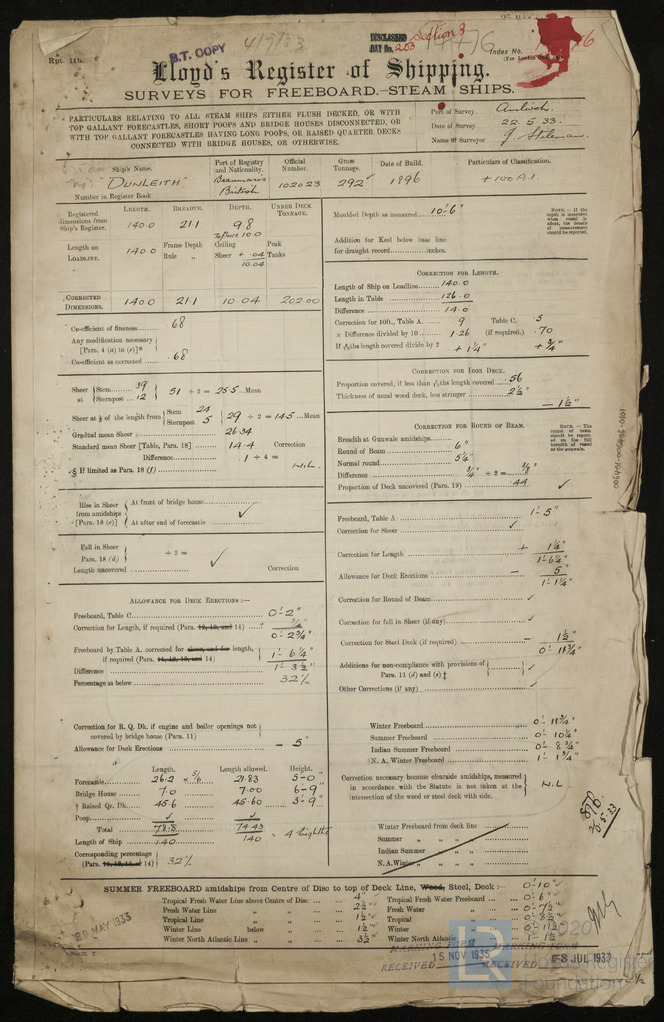 25 M
B.T. COPY
4/7/33
DISCLASSED
DAY No. 253
Section 3
Rpt. 11b.
Index No.
(For London Office only)
Lloyd's Register of Shipping.
SURVEYS FOR FREEBOARD.—STEAM SHIPS.
PARTICULARS RELATING TO ALL STEAM SHIPS EITHER FLUSH DECKED, OR WITH
TOP GALLANT FORECASTLES, SHORT POOPS AND BRIDGE HOUSES DISCONNECTED, OR
WITH TOP GALLANT FORECASTLES HAVING LONG POOPS, OR RAISED QUARTER DECKS
CONNECTED WITH BRIDGE HOUSES, OR OTHERWISE.
Port of Survey Amlwch.
Date of Survey 22.5.33.
Name of Surveyor J. Stileman.
Ship's Name. Port of Registry and Nationality. Official Number. Gross Tonnage. Date of Build. Particulars of Classification.
"DUNLEITH" Beaumaris British 102023 292 1896 +100A1.
Number in Register Book
LENGTH. BREADTH. DEPTH. UNDER DECK TONNAGE.
Registered dimensions from Ship's Register. 140.0 21.1 9.8
Length on LOADLINE. 140.0 Frame Depth Rule „ Ceiling Sheer + .04 Peak Tanks
10.04
CORRECTED DIMENSIONS. 140.0 21.1 10.04 202.00
Co-efficient of fineness 68
Any modification necessary [Para. 4 (d) to (e)]*
Co-efficient as corrected .68
Sheer at { Stem 39 Sternpost 12 } 51 ÷ 2 = 25.5 Mean
Sheer at ⅛ of the length from { Stem 24 Sternpost 5 } 29 ÷ 2 = 14.5 Mean
Gradual mean Sheer 26.34
Standard mean Sheer [Table, Para. 18] 14.4 Correction
Difference 1 ÷ 4 =
§ If limited as Para. 18 (f) NIL.
Rise in Sheer from amidships [Para. 18 (e)] { At front of bridge house
At after end of forecastle ✓
Fall in Sheer Para. 18 (d) ÷ 2 = ✓
Length uncovered Correction
ALLOWANCE FOR DECK ERECTIONS :—
Freeboard, Table C 0'-2"
Correction for Length, if required (Para. 12, 13, and 14) ¾"
0'-2¾"
Freeboard by Table A, corrected for sheer, and for length, if required (Para. 11, 12, 13, and 14) 1'-6¼"
Difference 1'-3½"
Percentage as below 32%
Correction for R. Q. Dk. if engine and boiler openings not covered by bridge house (Para. 11)
Allowance for Deck Erections — 5"
Length. Length allowed. Height.
Forecastle 26.2 × 5/6 21.83 5-0"
Bridge House 7.0 7.00 6-9"
† Raised Qr. Dk. 45.6 45.60 3-9"
Poop ✓ ✓
Total 78.8 74.43 = 4 eighths
Length of Ship 140 140
Corresponding percentage (Para. 11, 12, 13, or 14) 32%
Moulded Depth as measured 10'-6"
NOTE.—If the depth is measured when vessel is afloat, the details of measurement should be reported.
Addition for Keel below base line
for draught record inches.
CORRECTION FOR LENGTH.
Length of Ship on Loadline 140.0
Length in Table 126.0
Difference 14.0
Correction for 10ft., Table A. 9 Table C. 5
× Difference divided by 10 1.26 (if required.) .70
If 6/10ths length covered divide by 2 + 1¼" + ¾"
CORRECTION FOR IRON DECK.
Proportion covered, if less than 7/10ths length covered .56
Thickness of usual wood deck, less stringer 2½"
— 1½"
CORRECTION FOR ROUND OF BEAM.
NOTE.—The round of beam should be reported on the full breadth of vessel at the gunwale.
Breadth at Gunwale amidships
Round of Beam 6"
Normal round 5¼"
Difference ¾" ÷ 2 = ⅜"
Proportion of Deck uncovered (Para. 19) .44 ✓
Freeboard, Table A 1'-5"
Correction for Sheer ✓
Correction for Length + 1¼"
1'-6¼"
Allowance for Deck Erections — 5"
1'-1¼"
Correction for Round of Beam ✓
Correction for fall in Sheer (if any) ✓
Correction for Steel Deck (if required) — 1½"
0'-11¾"
Additions for non-compliance with provisions of Para. 11 (d) and (e) ‡ ✓
Other Corrections (if any) ✓
Winter Freeboard 0'-11¾"
Summer Freeboard 0'-10¼"
Indian Summer Freeboard 0'-8¾"
N. A. Winter Freeboard 1'-1¾"
Correction necessary because clearside amidships, measured in accordance with the Statute is not taken at the intersection of the wood or steel deck with side. NIL.
Winter Freeboard from deck line
Summer „ „ „
Indian Summer „ „
N.A. Winter „ „ „
26.5.33
SUMMER FREEBOARD amidships from Centre of Disc to top of Deck Line, Wood, Steel, Deck :— 0'-10"
Tropical Fresh Water Line above Centre of Disc 4" Tropical Fresh Water Freeboard 0'-6"
Fresh Water Line „ „ 2½" Fresh Water „ 0'-7½"
Tropical Line „ „ 1½" Tropical „ 0'-8½"
Winter Line below „ 1½" Winter „ 0'-11½"
Winter North Atlantic Line „ „ 3½" Winter North Atlantic „ 1'-1½"
29 MAY 1933
MARKING FORM
RECEIVED 15 NOV 1935
MARKING FORM
RECEIVED 8 JUL 1933
© 2020
Lloyd's Register
Foundation